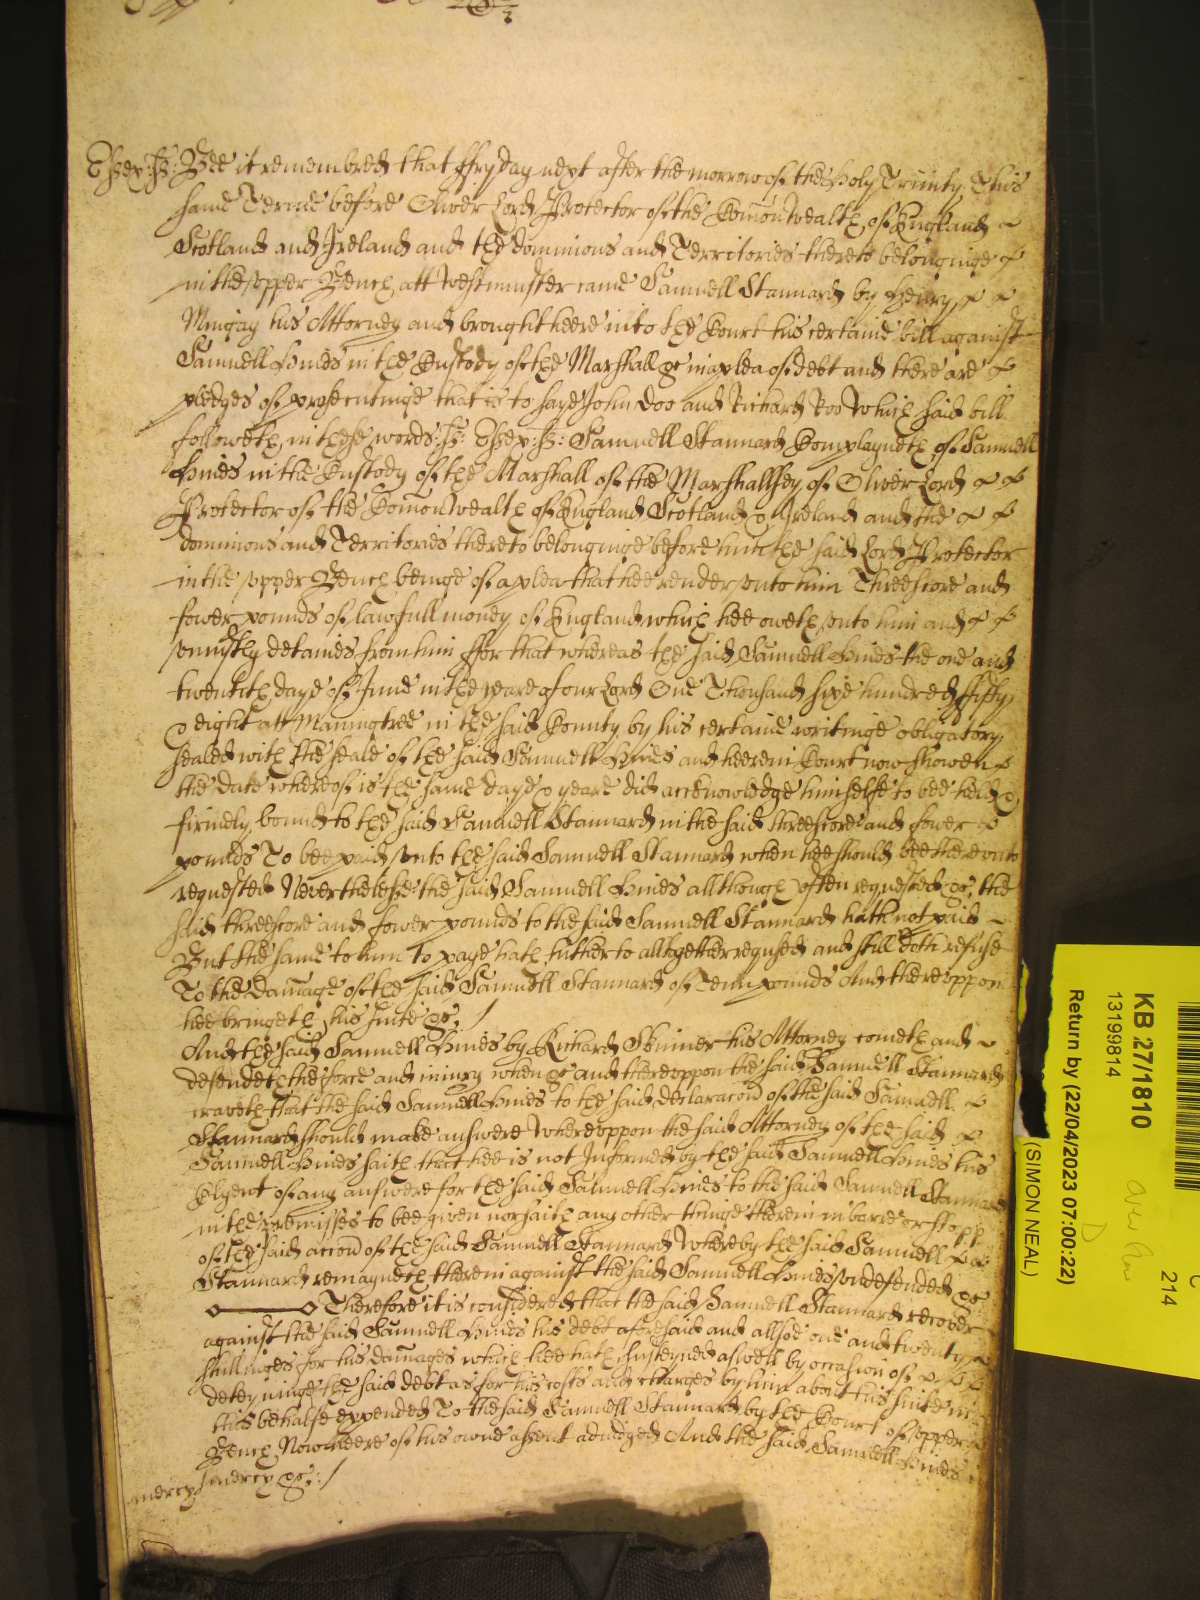 Essex: ss: Bee it remembred that ffryday next after the morrow of the Holy Trinity This
same Terme before Oliver Lord Protector of the Comonwealth of England
Scotland and Ireland and the dominions and Territories thereto belonginge
in the upper Bench att Westminster came Samuell Stannard by Henry
Mingay his Attorney and brought heere into the Court his certaine bill against
Samuell Hines in the Custody of the Marshall &c in a plea of debt and there are
pledges of prosecutinge that is to saye John Doo and Richard Roo Which said bill
followeth in these words: ss: Essex: ss: Samuell Stannard Complayneth of Samuell
Hines in the Custody of the Marshall of the Marshallsey of Oliver Lord
Protector of the Comonwealth of England Scotland & Ireland and the
dominions and Territories thereto belonginge before him the said Lord Protector
in the upper Bench beinge of a plea that hee render unto him Threescore and
fower pounds of lawfull money of England which hee oweth unto him and
uniustly detaines from him ffor that whereas the said Samuell Hines the one and
twentith daye of June in the yeare of our Lord One Thousand sixe hundred ffifty
& eight att Maningtree in the said County by his certaine writinge obligatory
sealed with the seale of the said Samuell Hines and heere in Court now showen
the date whereof is the same daye & yeare did acknowledge himselfe to bee held &
firmely bound to the said Samuell Stannard in the said threescore and fower
pounds To bee paid unto the said Samuell Stannard when hee should bee thereunto
requested Neverthelesse the said Samuell Hines allthough often requested &c. the
said threescore and fower pounds to the said Samuell Stannard hath not paid
But the same to him to paye hath hitherto alltogether refused and still doth refuse
To the damage of the said Samuell Stannard of Tenn pounds And thereuppon
hee bringeth his suite &c. /
And the said Samuell Hines by Richard Skinner his Attorney cometh and
defendeth the force and iniury when &c and thereuppon the said Samuell Stannard
craveth that the said Samuell Hines to the said declaracon of the said Samuell
Stannard should make answere Whereuppon the said Attorney of the said
Samuell Hines saith that hee is not Informed by the said Samuell Hines his
Clyent of any answere for the said Samuell Hines to the said Samuell Stannard
in the premisses to bee given nor saith any other thinge therein in barre or stopp
of the said accon of the said Samuell Stannard Whereby the said Samuell
Stannard remayneth therein against the said Samuell Hines undefended &c
Therefore it is considered that the said Samuell Stannard recover
against the said Samuell Hines his debt aforesaid and allsoe one and twenty
shillinges for his damages which hee hath susteyned aswell by occasion of
deteyninge the said debt as for his costs and charges by him about his suite in
this behalfe expended To the said Samuell Stannard by the Court of upper
Bench Now heere of his owne assent adiudged And the said Samuell Hines in
mercy mercy &c: /
KB 27/1810
13199814
Return by (22/04/2023 07:00:22)
(SIMON NEAL)
214